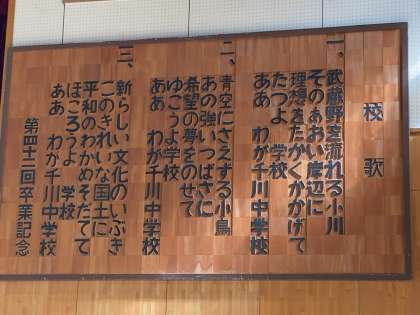 校歌
一、武蔵野を流れる小川
そのあおい岸辺に
理想をたかくかかげて
たつよ 学校
ああ わが千川中学校
二、青空にさえずる小鳥
あの強いつばさに
希望の夢をのせて
ゆこうよ学校
ああ わが千川中学校
三、新らしい文化のいぶき
このきれいな国土に
平和のわかめそだてて
ほころうよ 学校
ああ わが千川中学校
第四十二回卒業記念